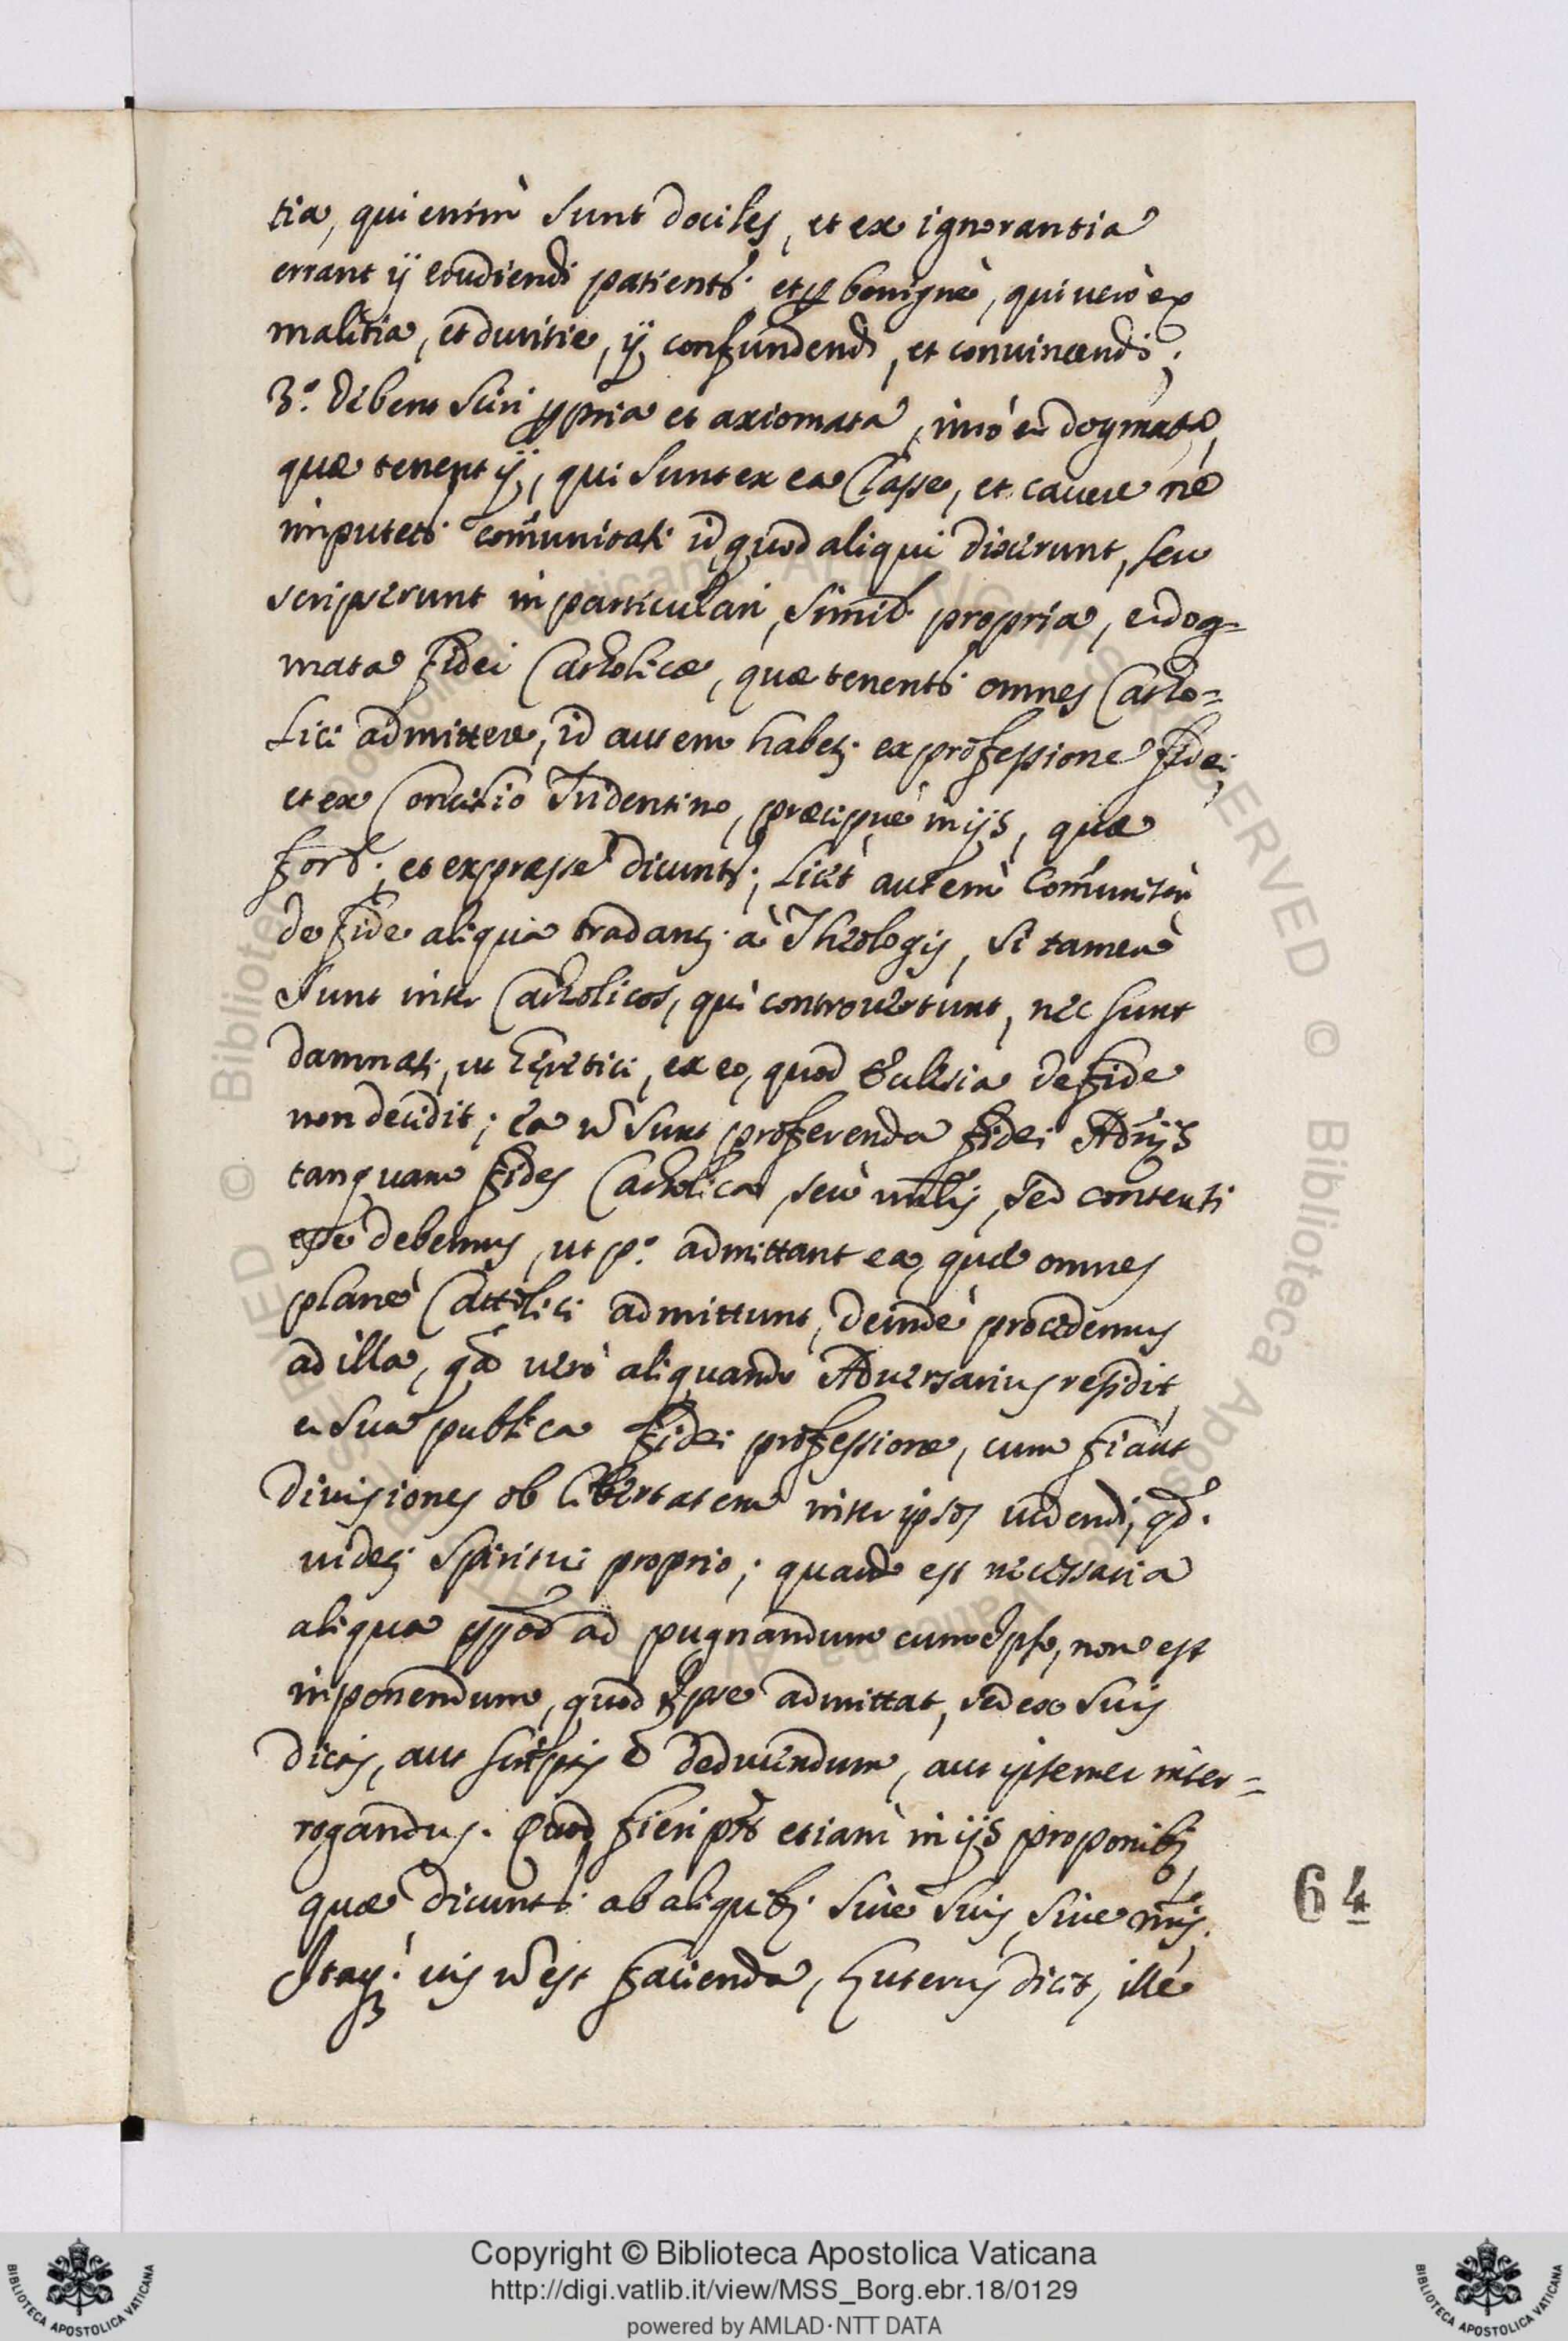 tia, qui enim sunt dociles, et ex ignorantia
errant ij erudiendi patientr. et benignè, qui uerò ex
malitia, et duritie, ij confundendi, et conuincendi;
3.º debent sciri ppria et axiomata, imò et dogmata,
quæ tenent ij, qui sunt ex ea Classe, et cauere nè
imputetr. comunitati id quod aliqui dixerunt, seu
scripserunt in particulari, simil. propria, et dog=
mata fidei Catholicæ, quæ tenentr. omnes Catho=
lici admittere, id autem habetr. ex professione fidei,
et ex Concilio Tridentino, præcipuè in ijs, quæ
form. et expresse dicuntr.; licèt autem Comuniter
de fide aliqua tradantr. à Theologis, si tamen
sunt inter Catholicos, qui controuertunt, nec sunt
damnati, ut hæretici, ex eo, quod Ecclesia de fide
non decidit; ea nō sunt proferenda fidei Adrijs
tanquam fides Catholica, seu multis, sed contenti
esse debemus, ut p.º admittant ea, quæ omnes
planè Cattolici admittunt, deindè procedemus
ad illa, qa uerò aliquando Aduersarius residit
a sua publica fidei professione, cum fiant
diuisiones ob libertatem inter ipsos credendi, qd.
uidetr. spiritui proprio; quando est necessaria
aliqua ppōo ad pugnandum cum ipso, non est
inponendum, quod ipse admittat, sed ex suis
dictis, aut scriptis ē deducendum, aut ipsemet inter=
rogandus. Quod fieri pōt etiam in ijs proponibj
quæ dicuntr. ab aliqubj siue suis, siue nris.
Itaq. uis nō est facienda, Luterus dicit, ille
64
Copyright © Biblioteca Apostolica Vaticana
http://digi.vatlib.it/view/MSS_Borg.ebr.18/0129
powered by AMLAD·NTT DATA
BIBLIOTECA APOSTOLICA VATICANA
BIBLIOTECA APOSTOLICA VATICANA